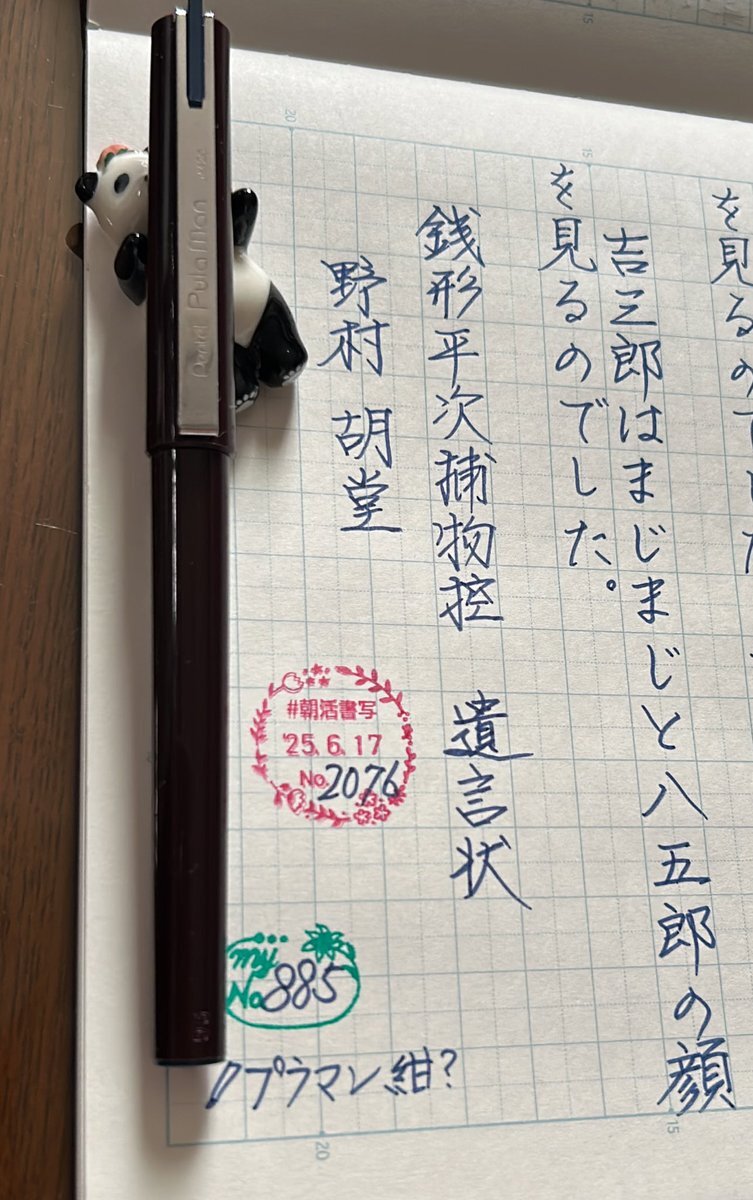 を見るのでした
吉三郎はまじまじと八五郎の顔
を見るのでした。
銭形平次捕物控 遺言状
野村 胡堂
#朝活書写
'25.6.17
No.2076
my
No.885
プラマン紺?
Pentel PulaMan JAPAN
20
15
15
20
15